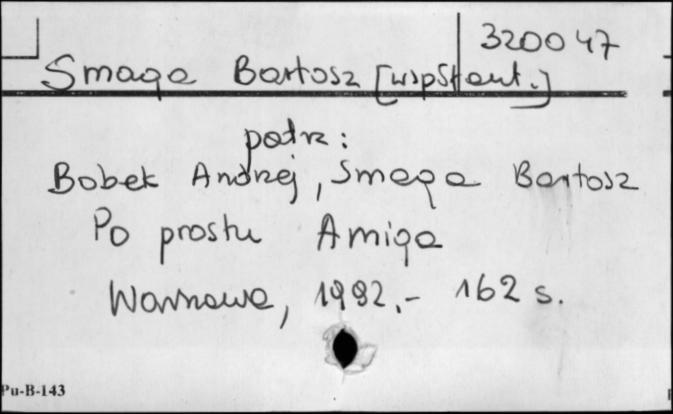 320047
Smaga Bartosz [współaut.]
patrz:
Bobek Andrzej, Smaga Bartosz
Po prostu Amiga
Warszawa, 1992.- 162 s.
Pu-B-143